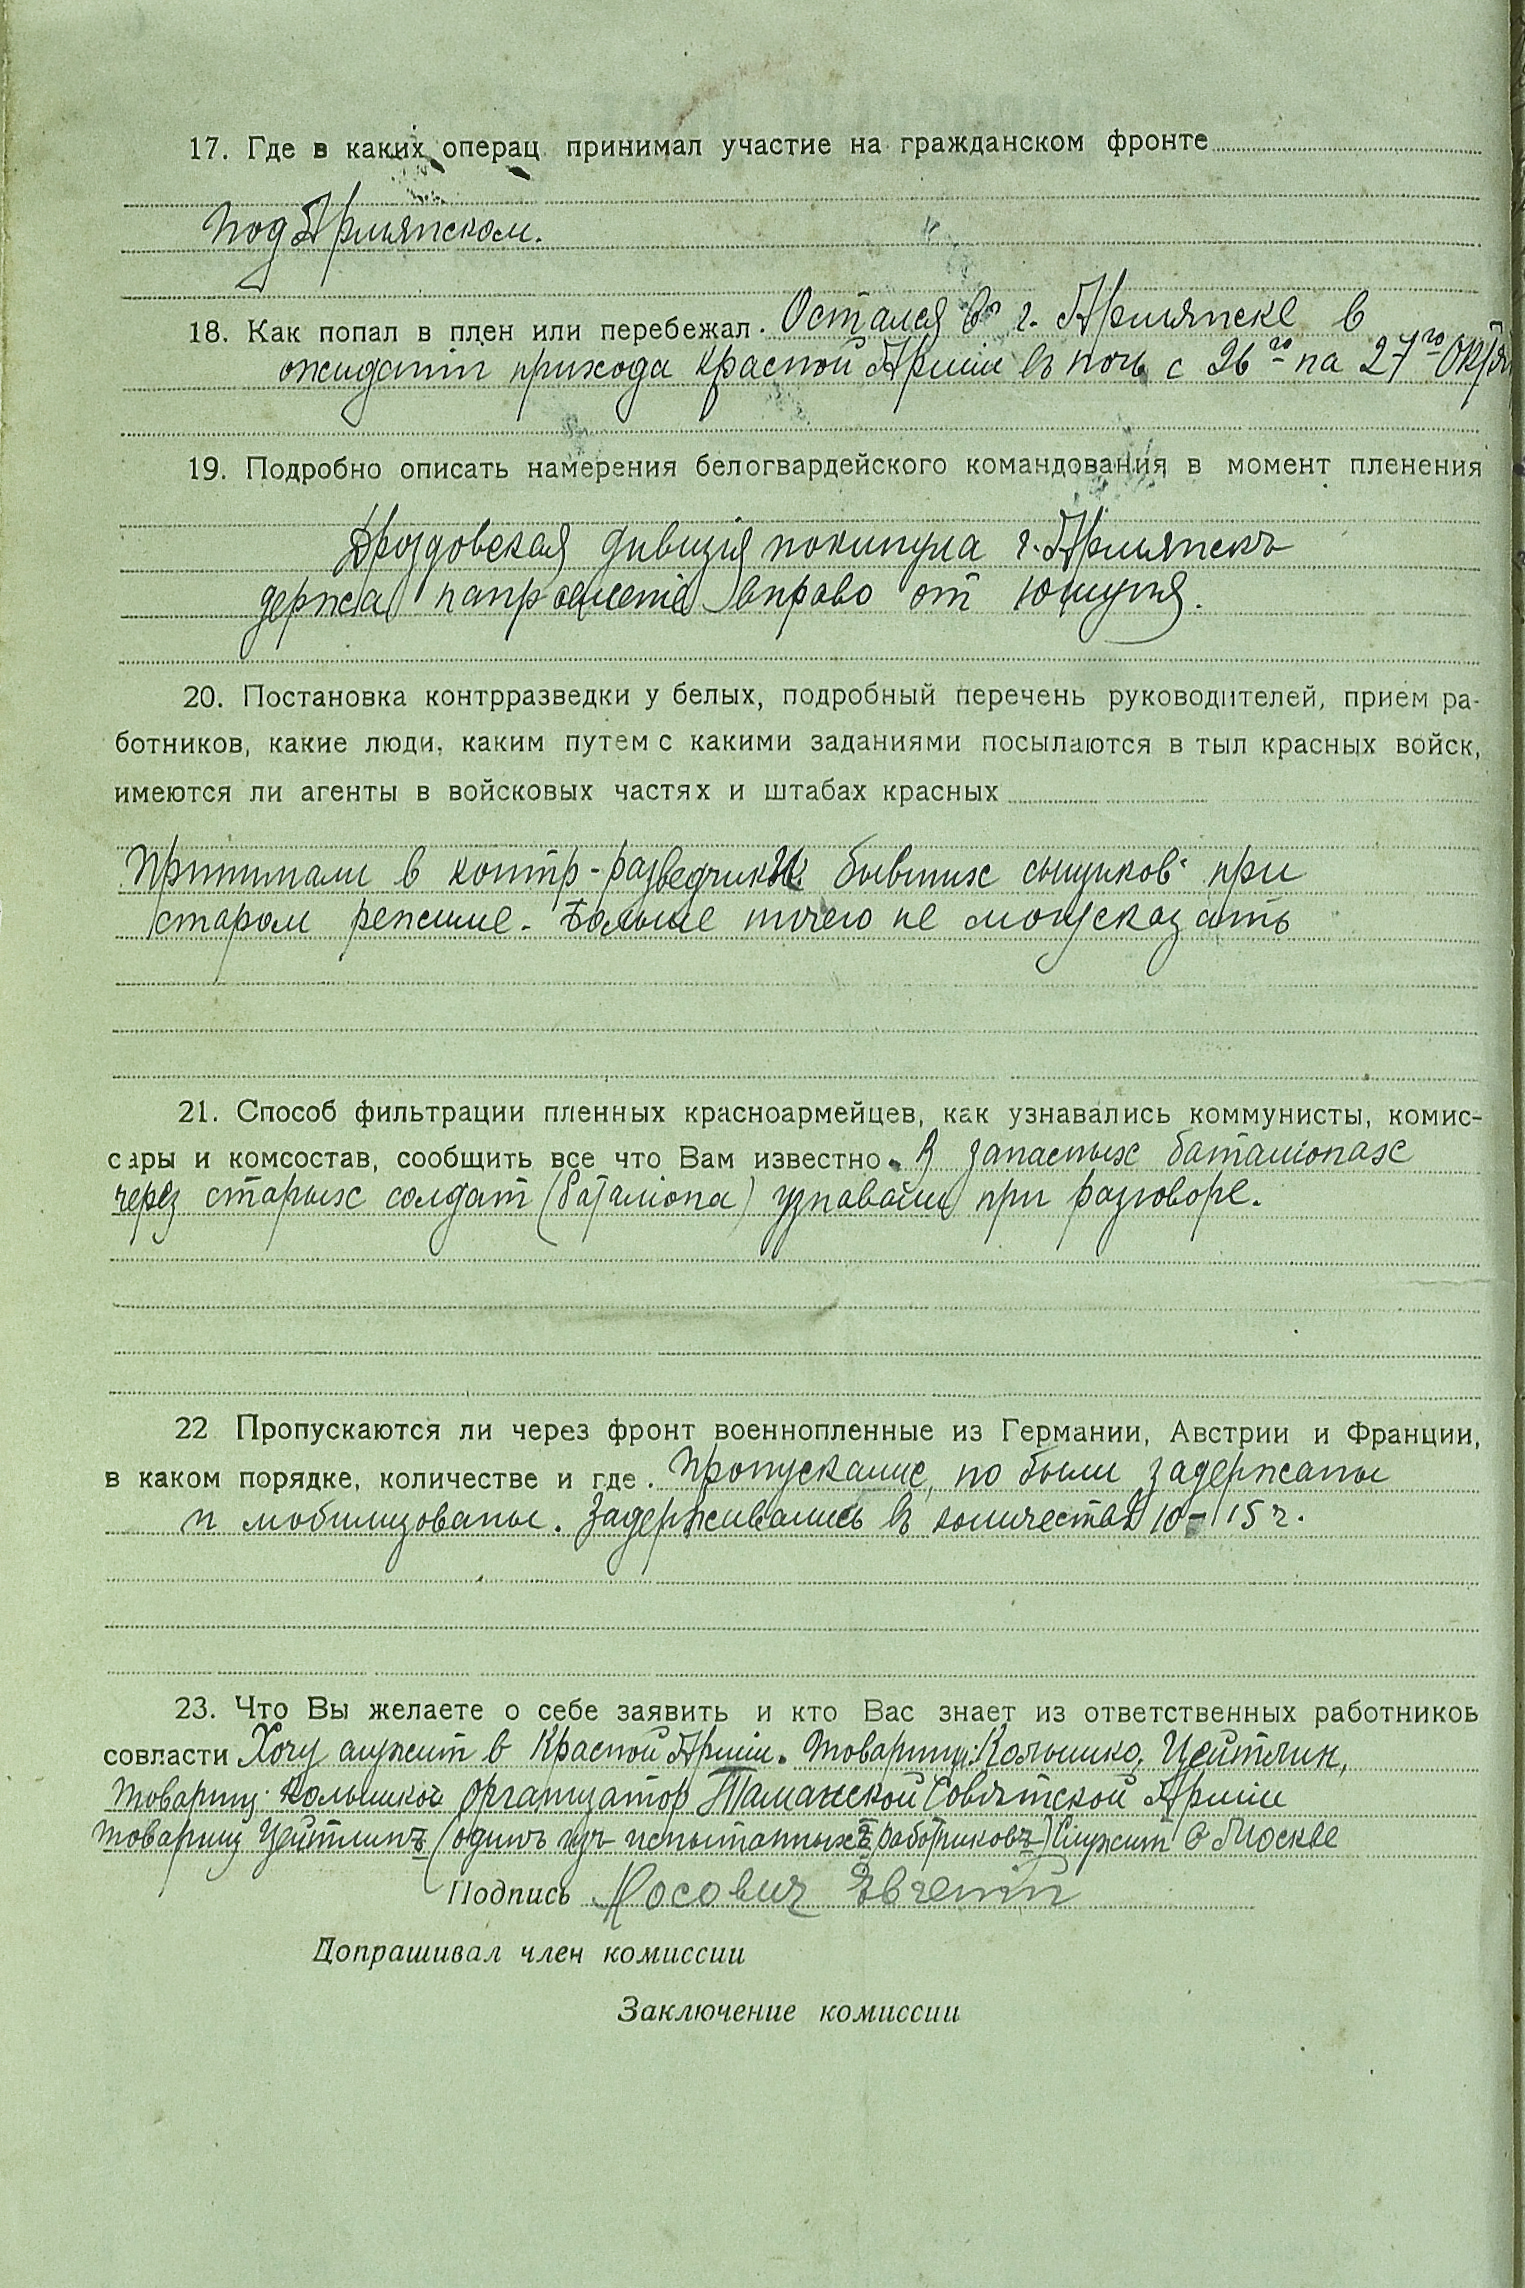 17. Где в каких операц. принимал участие на гражданском фронте
Под Армянском.
18. Как попал в плен или перебежал. Остался в г. Армянске в
ожиданіи прихода Красной Арміи въ ночь с 26го на 27го Октяб
19. Подробно описать намерения белогвардейского командования в момент пленения
Дроздовская дивизія покинула г. Армянскъ
держа направленіе вправо от Юшуня.
20. Постановка контрразведки у белых, подробный перечень руководителей, прием ра-
ботников, какие люди, каким путем с какими заданиями посылаются в тыл красных войск,
имеются ли агенты в войсковых частях и штабах красных
Принимали в контр-разведчики бывших сыщиков при
старом режиме. Больше ничего не могу сказать
21. Способ фильтрации пленных красноармейцев, как узнавались коммунисты, комис-
сары и комсостав, сообщить все что Вам известно. В запасных баталіонах
через старых солдат (баталіона) узнавали при разговоре.
22 Пропускаются ли через фронт военнопленные из Германии, Австрии и Франции,
в каком порядке, количестве и где. Пропускались, но были задержаны
и мобилизованы. Задерживались въ количествѣ 10-15 ч.
23. Что Вы желаете о себе заявить и кто Вас знает из ответственных работников
совласти Хочу служит в Красной Арміи. Товарищи: Колышко, Цейтлин,
товарищ Колышко организатор Таманской Совѣтской Арміи
товарищ Цейтлинъ (один изъ испытанныхъ работниковъ) служит в Москве
Подпись Носович Евгеній
Допрашивал член комиссии
Заключение комиссии